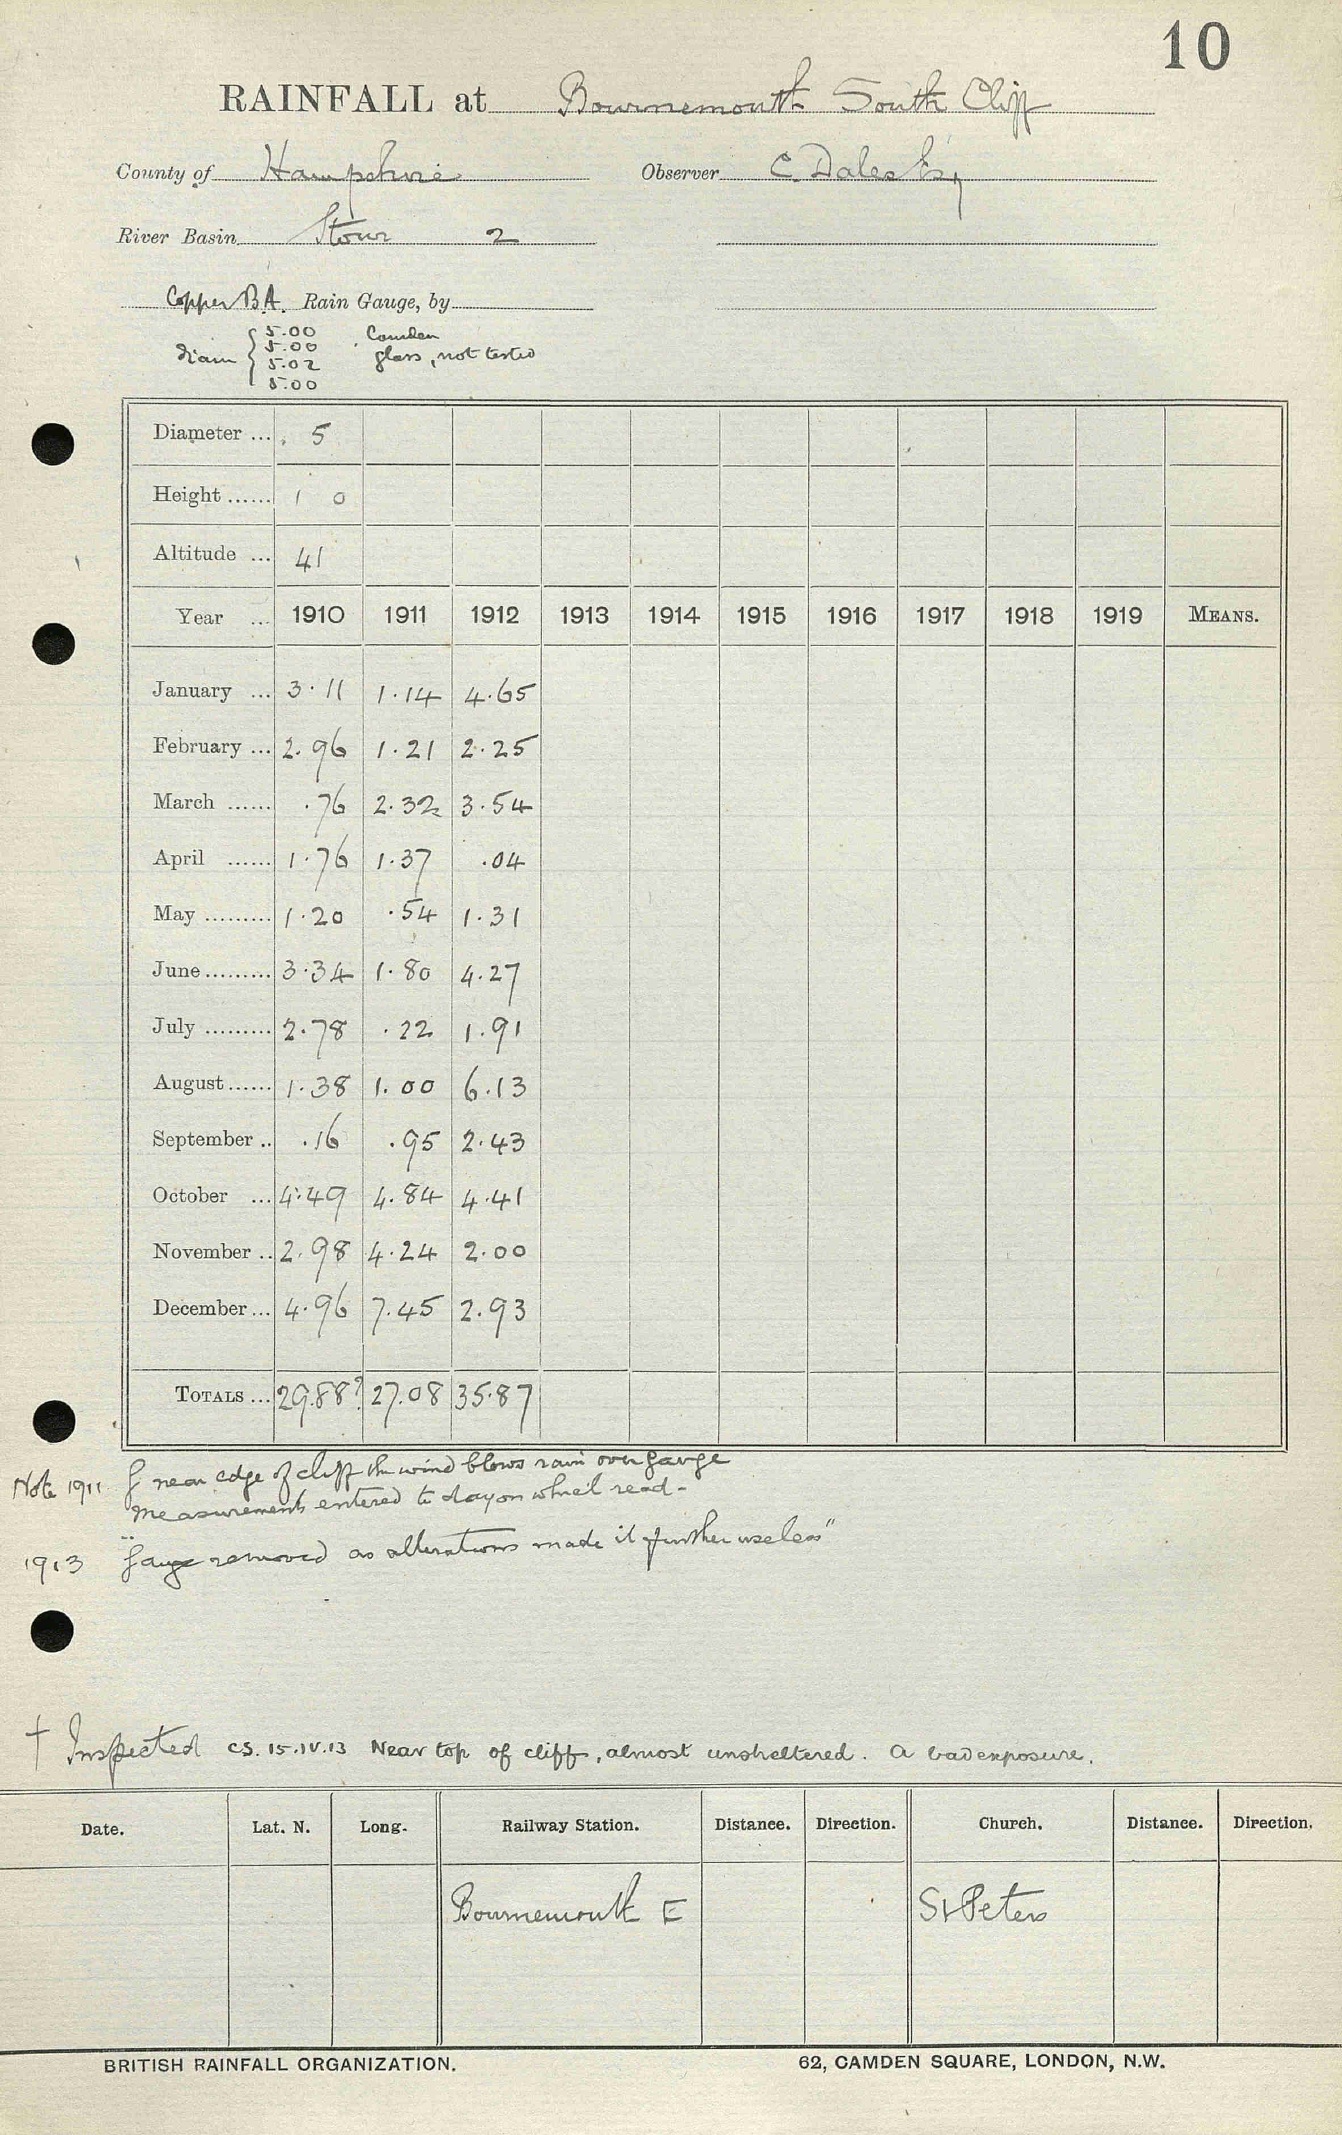 10
RAINFALL at Bournemouth South Cliff
County of Hampshire Observer C. Dales Esq
River Basin Stour 2
Copper B.A. Rain Gauge, by
diam { 5.00 Camden
5.00 glass, not tested
5.02
5.00
Diameter ... 5
Height ...... 1 0
Altitude ... 41
Year ... 1910 1911 1912 1913 1914 1915 1916 1917 1918 1919 MEANS.
January ... 3.11 1.14 4.65
February ... 2.96 1.21 2.25
March ...... .76 2.32 3.54
April ...... 1.76 1.37 .04
May ......... 1.20 .54 1.31
June ......... 3.34 1.80 4.27
July ......... 2.78 .22 1.91
August ...... 1.38 1.00 6.13
September .. .16 .95 2.43
October ... 4.49 4.84 4.41
November .. 2.98 4.24 2.00
December ... 4.96 7.45 2.93
TOTALS ... 29.88? 27.08 35.87
Note 1911 G near edge of cliff the wind blows rain over gauge
Measurements entered to day on which read -
1913 "Gauge removed as alterations made it further useless"
† Inspected CS. 15.IV.13 Near top of cliff, almost unsheltered. A bad exposure.
Date. Lat. N. Long. Railway Station. Distance. Direction. Church. Distance. Direction.
Bournemouth E St Peters
BRITISH RAINFALL ORGANIZATION. 62, CAMDEN SQUARE, LONDON, N.W.